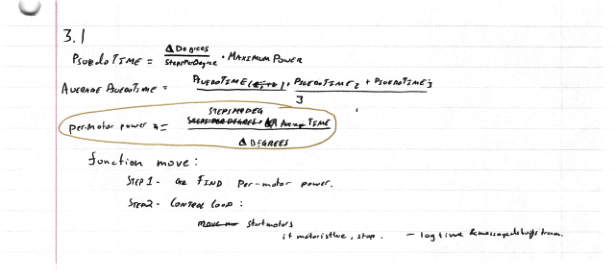 3.1
PSUEDOTIME = Δ Degrees / StepsPerDegree · MAXIMUM POWER
AVERAGE PSUEDOTIME = PSUEDOTIME1 + PSUEDOTIME2 + PSUEDOTIME3 / 3
STEPSPERDEG
Per-motor power = Average TIME
Δ DEGREES
function move:
STEP 1 - FIND Per-motor power.
STEP 2 - CONTROL LOOP:
start motors
if motor is there, stop. - log time